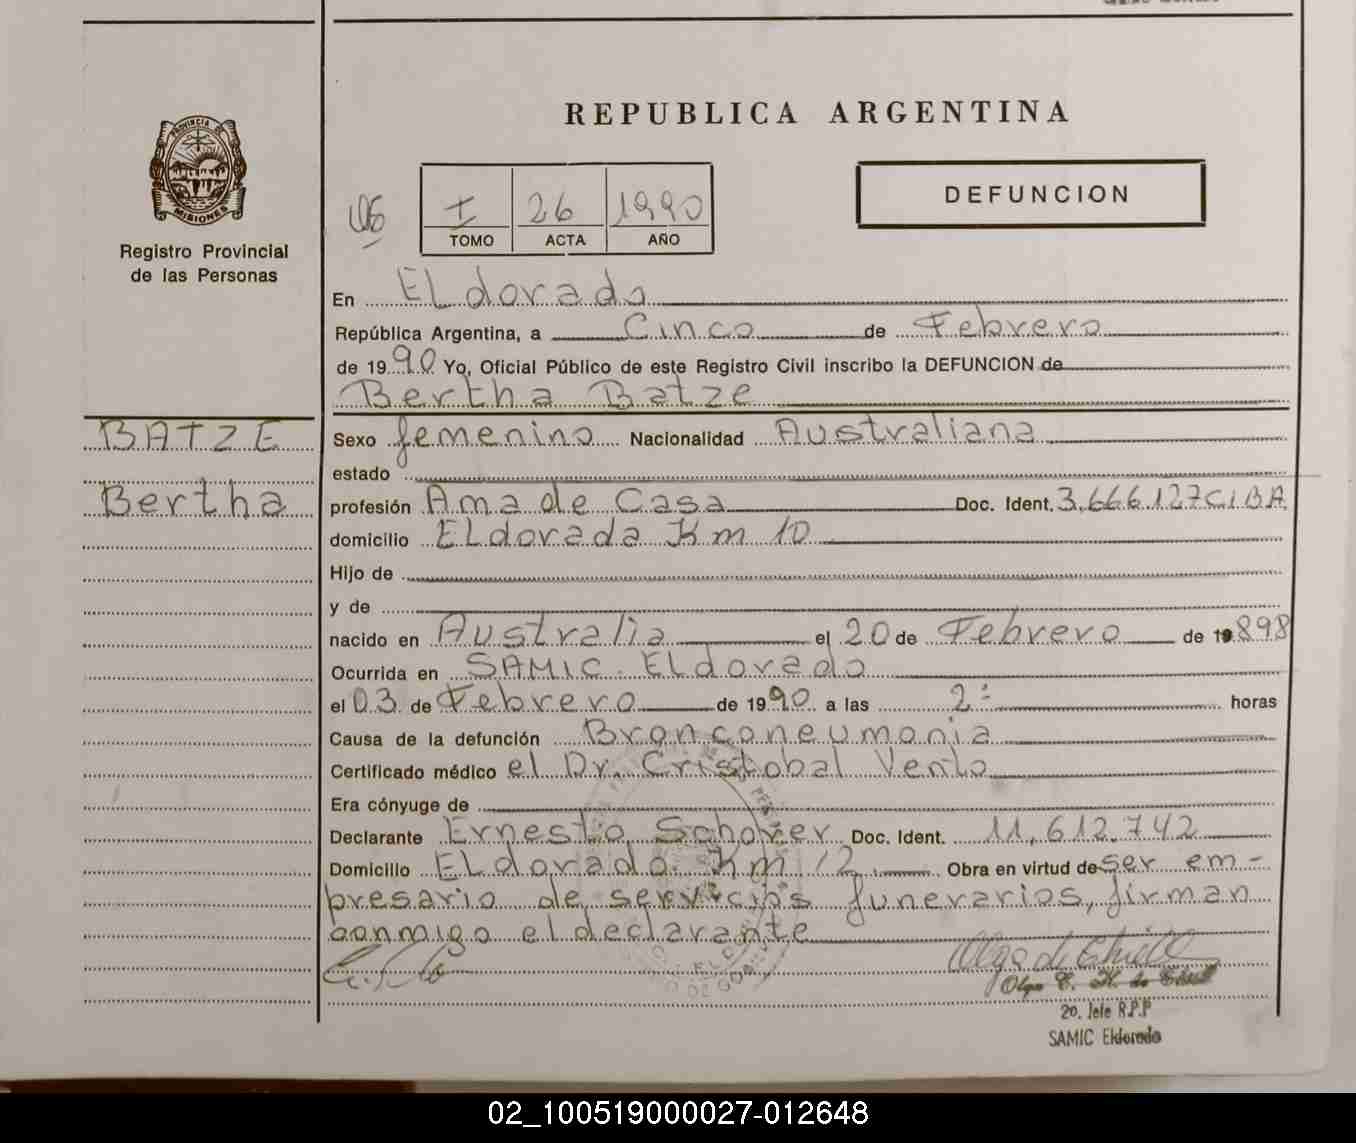 REPUBLICA ARGENTINA
PROVINCIA DE
MISIONES
Registro Provincial
de las Personas
I 26 1990
TOMO ACTA AÑO
DEFUNCION
En ELdorado
República Argentina, a Cinco de Febrero
de 1990 Yo, Oficial Público de este Registro Civil inscribo la DEFUNCION de
Bertha Batze
BATZE
Bertha
Sexo femenino Nacionalidad Australiana
estado
profesión Ama de Casa Doc. Ident. 3,666.127CIBA
domicilio ELdorada Km 10
Hijo de
y de
nacido en Australia el 20 de Febrero de 1898
Ocurrida en SAMIC. ELdorado
el 03 de Febrero de 1990 a las 2: horas
Causa de la defunción Bronconeumonia
Certificado médico el Dr. Cristobal Vento
Era cónyuge de
Declarante Ernesto Doc. Ident. 11,612.742
Domicilio ELdorado. Km 12. Obra en virtud de ser em-
presario de servicios funerarios, firman
conmigo el declarante
20. Jefe R.P.P
SAMIC Eldorado
02_100519000027-012648